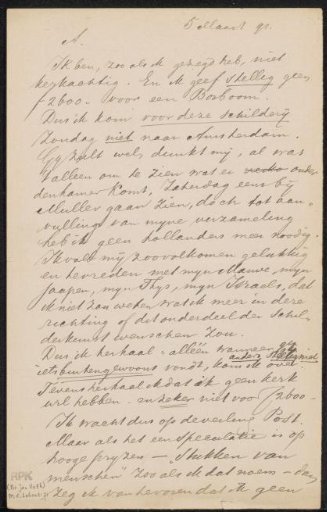 5 Maart 91.
A.
Ik ben, zooals ik gezegd heb, niet
kerkachtig. En ik geef stellig geen
f 2600.- voor een Bosboom.
Dus ik kom voor deze schilderij
Zondag niet naar Amsterdam.
Gij zult wel, dunkt mij, al was
't alleen om te zien wat er onder
den hamer komt, Zaterdag eens bij
Muller gaan zien, doch tot aan-
vulling van mijne verzameling
heb ik geen hollanders meer noodig.
Ik voel mij zoo volkomen gelukkig
en tevreden met mijn Mauve, mijn
Jaapen, mijn Thys, mijn Israels, dat
ik niet zou weten wat ik meer in deze
richting of dit onderdeel der schil-
derkunst wenschen zou.
Dus ik herhaal - alleen wanneer gij
iets buitengewoons vondt, kom ik over
anders stellig niet
Tevens herhaal ik dat ik geen kerk
wil hebben - en zeker niet voor f 2600.-
Ik wacht dus op de veiling Post.
Maar als het een speculatie is op
hooge prijzen - "Stukken van
menschen" zooals ik dat noem - dan
zeg ik van te voren dat ik geen
RPK